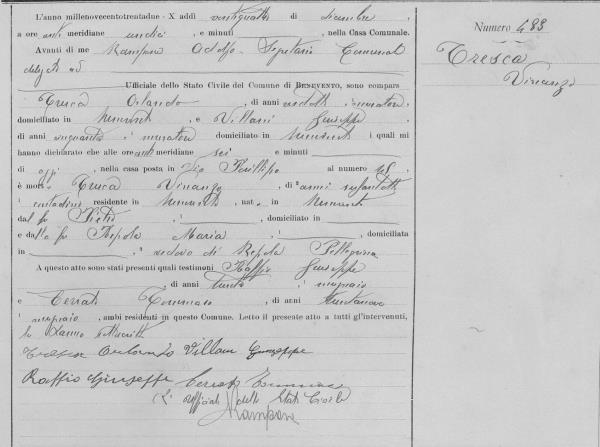 L'anno millenovecentotrentadue - X addì ventiquattro di dicembre
a ore anti meridiane undici e minuti, nella Casa Comunale.
Avanti di me Rampone Adolfo Segretario Comunale
delegato
Ufficiale dello Stato Civile del Comune di BENEVENTO, sono compars
Tresca Orlando, di anni muratore
domiciliato in Benevento, e Villani Giuseppe
di anni cinquanta muratore domiciliato in Benevento i quali mi
hanno dichiarato che alle ore anti meridiane sei e minuti
di oggi, nella casa posta in Via Posillipo al numero
è mort Tresca Vincenzo, di anni
contadino residente in Benevento, nat o in Benevento
dal fu, domiciliato in
e dalla fu Repola Maria, domiciliata
in, vedovo di Repola Pellegrina
A questo atto sono stati presenti quali testimoni Raffio Giuseppe
, di anni trenta
e Cerrat Tommaso, di anni trentanove
, ambi residenti in questo Comune. Letto il presente atto a tutti gl'intervenuti,
lo hanno sottoscritto
Tresca Orlando Villani Giuseppe
Raffio Giuseppe Cerrat Tommaso
L' Ufficiale dello Stato Civile
Rampone
Numero 483
Tresca
Vincenzo